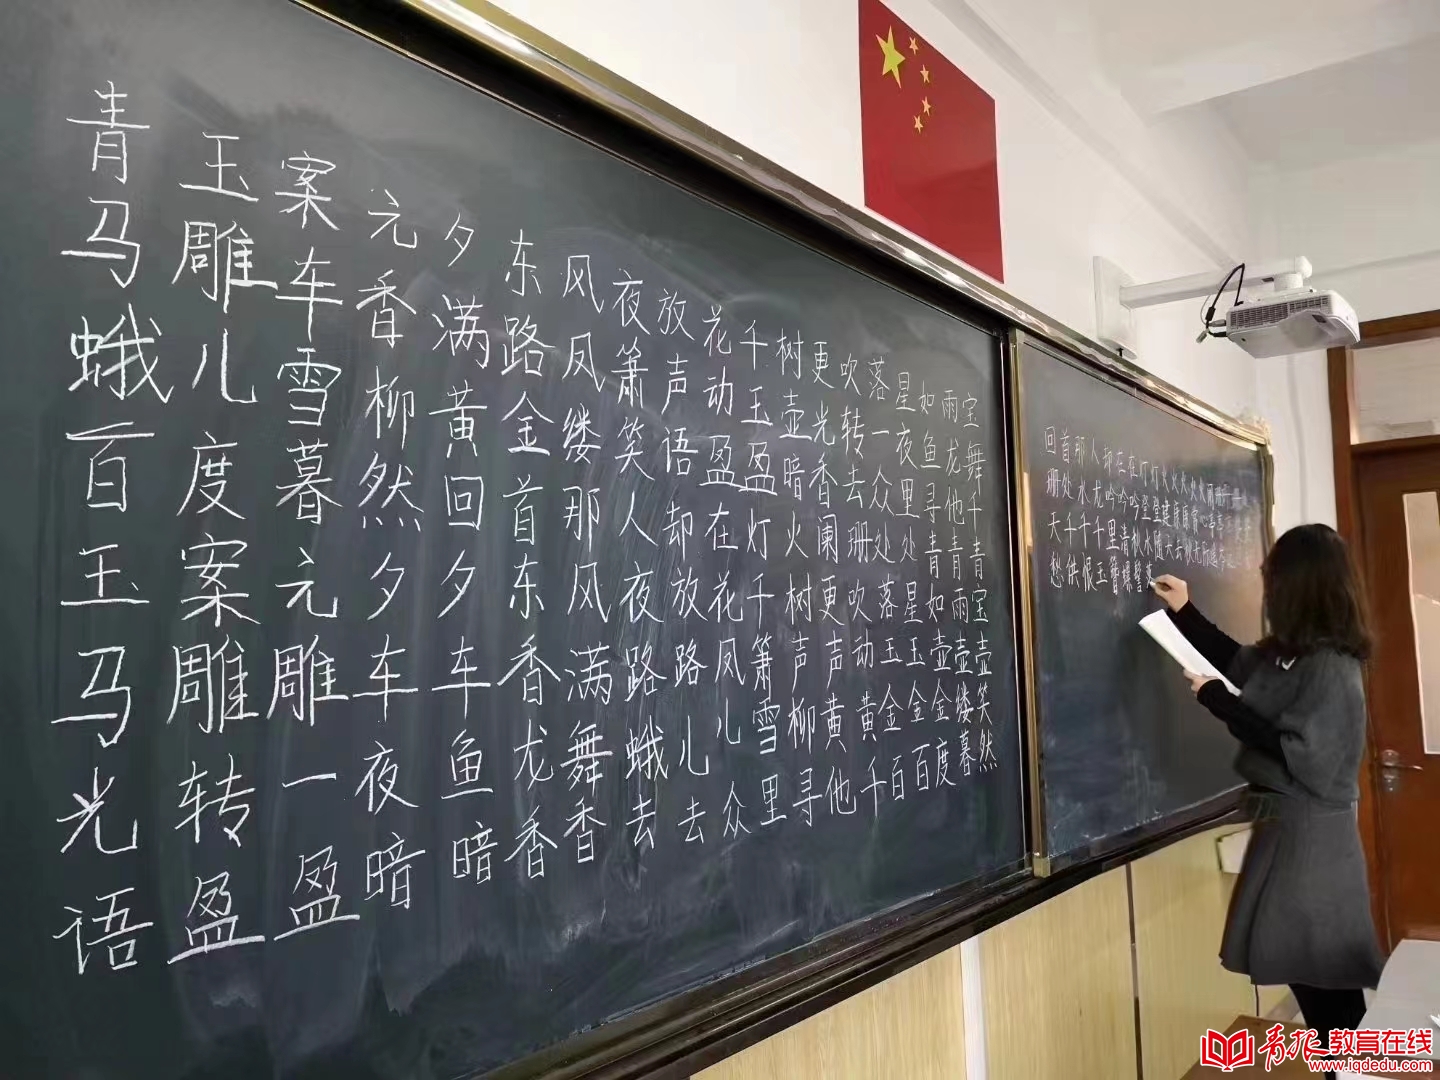 青玉案元夕东风夜放花千树更吹落星如雨宝
马雕车香满路凤箫声动玉壶光转一夜鱼龙舞
蛾儿雪柳黄金缕笑语盈盈暗香去众里寻他千
百度暮然回首那人却在灯火阑珊处处青青青
玉案元夕夕东风夜放花千树更吹落星如雨宝
马雕雕车车香满路路凤箫声声动玉玉壶壶壶
光转一夜鱼龙舞蛾儿儿雪柳黄黄金金金缕笑
语盈盈暗暗香香去去众里寻他千百百度暮然
回首那人却在在灯灯火火火火
珊处水龙吟吟吟登登建康康赏心亭亭
天千千千里清秋水随天去秋无际遥岑远
愁供恨玉簪螺髻落
青报教育在线
www.iqdedu.com